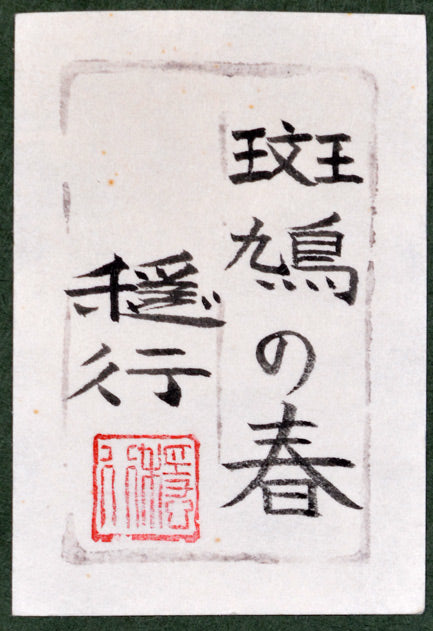 斑鳩の春
穏行